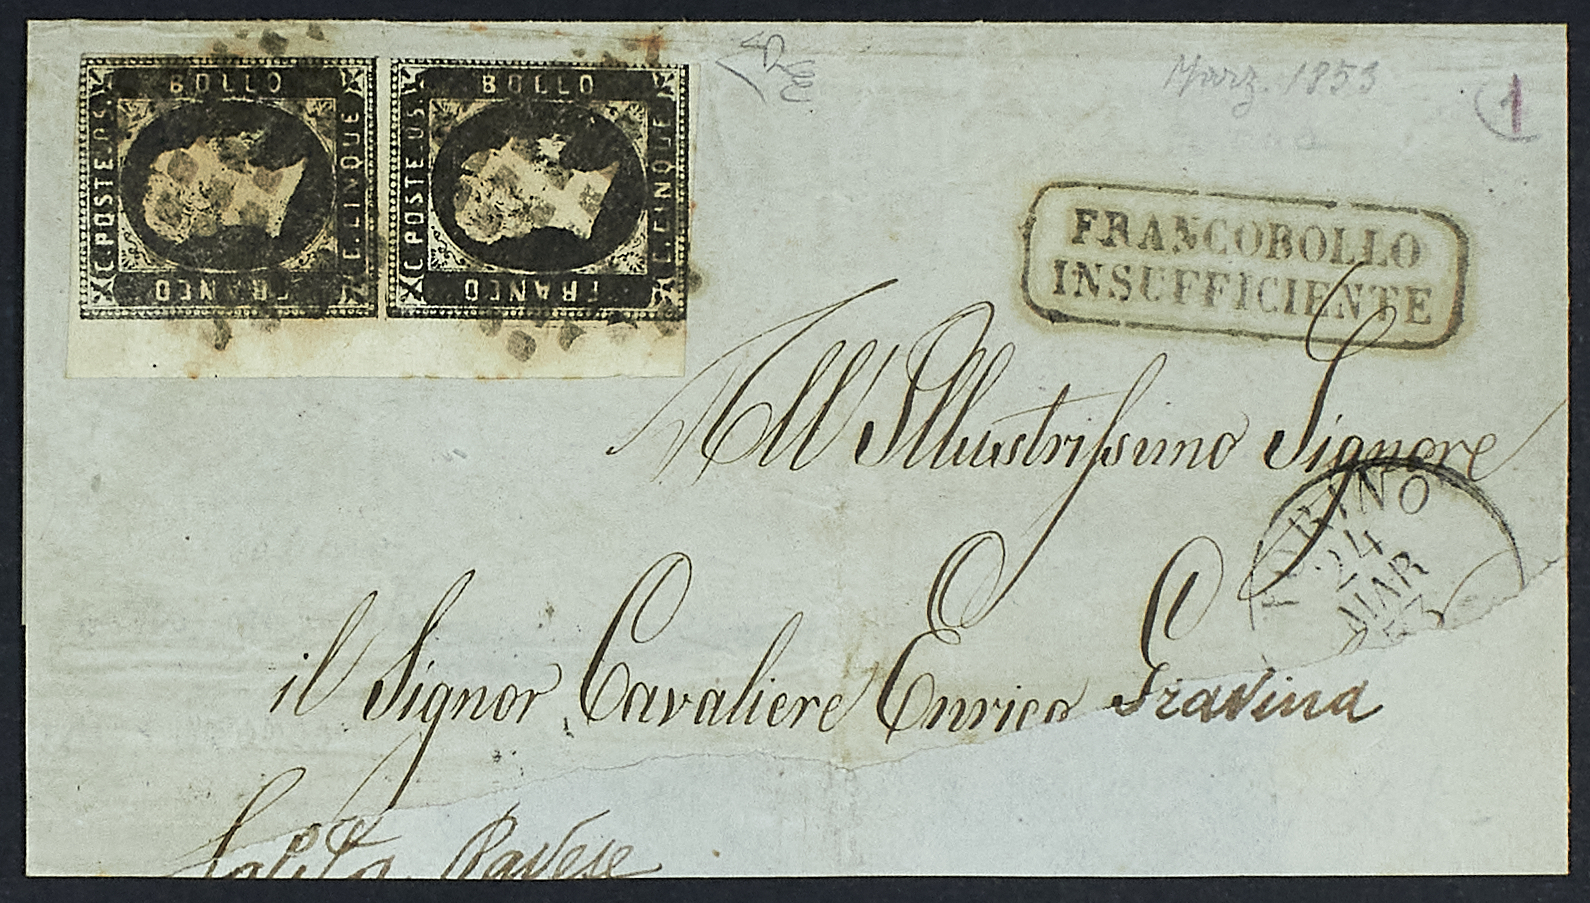 BOLLO
C. POSTE.
C. CINQUE.
FRANCO
BOLLO
C. POSTE.
C. CINQUE.
FRANCO
Marz. 1853
1
FRANCOBOLLO
INSUFFICIENTE
All'Illustrissimo Signore
TORINO
24
MAR
53
il Signor Cavaliere Enrico Gravina
Pavese